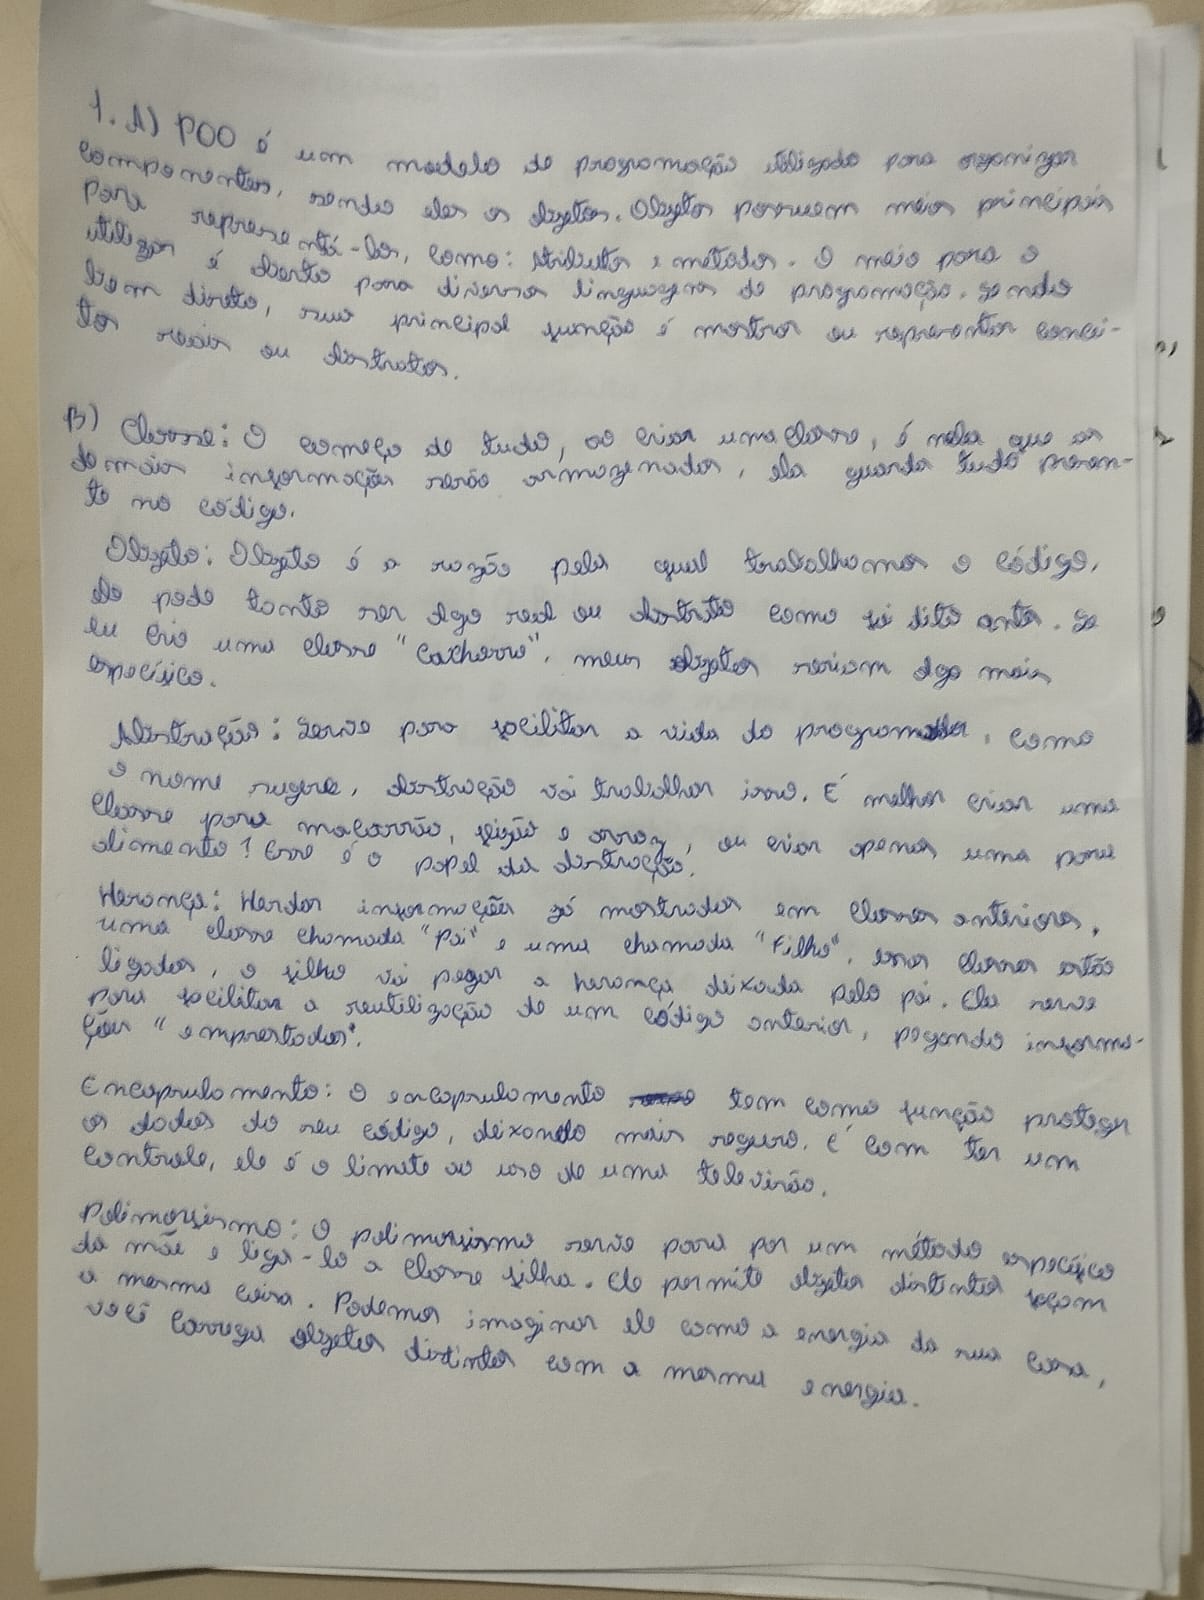 1. A) POO é um modelo de programação utilizado para organizar
componentes, sendo eles os objetos. Objetos possuem meios principais
para representá-los, como: Atributos e métodos. O meio para o
utilizar é aberto para diversas linguagens de programação. Sendo
bem direto, sua principal função é mostrar ou representar concei-
tos reais ou abstratos.
B) Classe: O começo de tudo, ao criar uma classe, é nela que as
demais informações serão armazenadas, ela guarda tudo presen-
te no código.
Objeto: Objeto é a razão pela qual trabalhamos o código,
ele pode tanto ser algo real ou abstrato como já dito antes. Se
eu crio uma classe "Cachorro", meus objetos seriam algo mais
específico.
Abstração: Serve para facilitar a vida do programador, como
o nome sugere, abstração vai trabalhar isso. É melhor criar uma
classe para macarrão, feijão e arroz, ou criar apenas uma para
alimento? Esse é o papel da abstração.
Herança: Herdar informações já mostradas em classes anteriores,
uma classe chamada "Pai" e uma chamada "Filho", essas classes estão
ligadas, o filho vai pegar a herança deixada pelo pai. Ela serve
para facilitar a reutilização de um código anterior, pegando informa-
ções "emprestadas".
Encapsulamento: O encapsulamento tem como função proteger
os dados do seu código, deixando mais seguro. É com ter um
controle, ele é o limite ao uso de uma televisão.
Polimorfismo: O polimorfismo serve para por um método específico
da mãe e liga-lo a classe filha. Ele permite objetos distintos façam
a mesma coisa. Podemos imaginar ele como a energia da sua casa,
você carrega objetos distintos com a mesma energia.